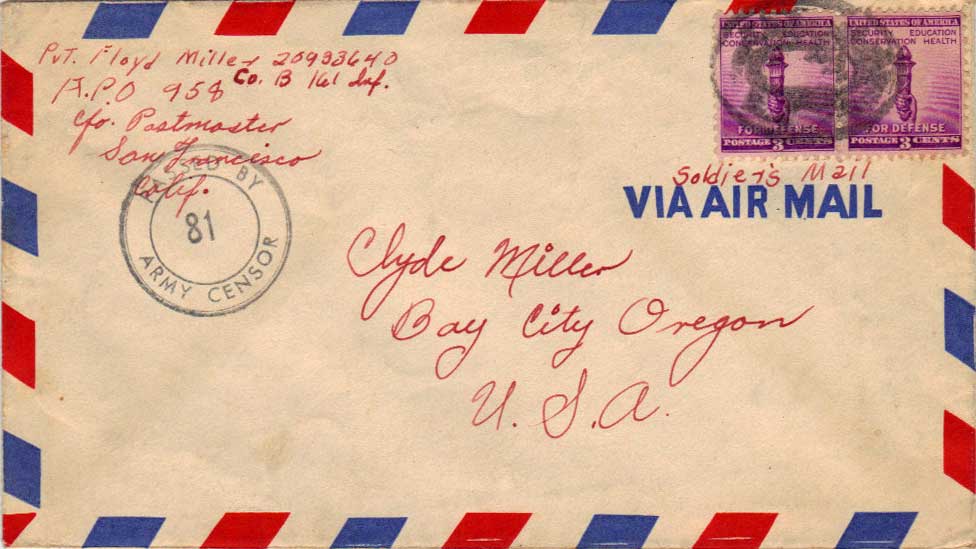 Pvt. Floyd Miller 20933640
Co. B 161 Inf.
A.P.O 958
c/o. Postmaster
San Francisco
Calif.
PASSED BY
81
ARMY CENSOR
UNITED STATES OF AMERICA
SECURITY EDUCATION
CONSERVATION HEALTH
FOR DEFENSE
POSTAGE 3 CENTS
UNITED STATES OF AMERICA
SECURITY EDUCATION
CONSERVATION HEALTH
FOR DEFENSE
POSTAGE 3 CENTS
Soldier's Mail
VIA AIR MAIL
Clyde Miller
Bay City Oregon
U. S. A.